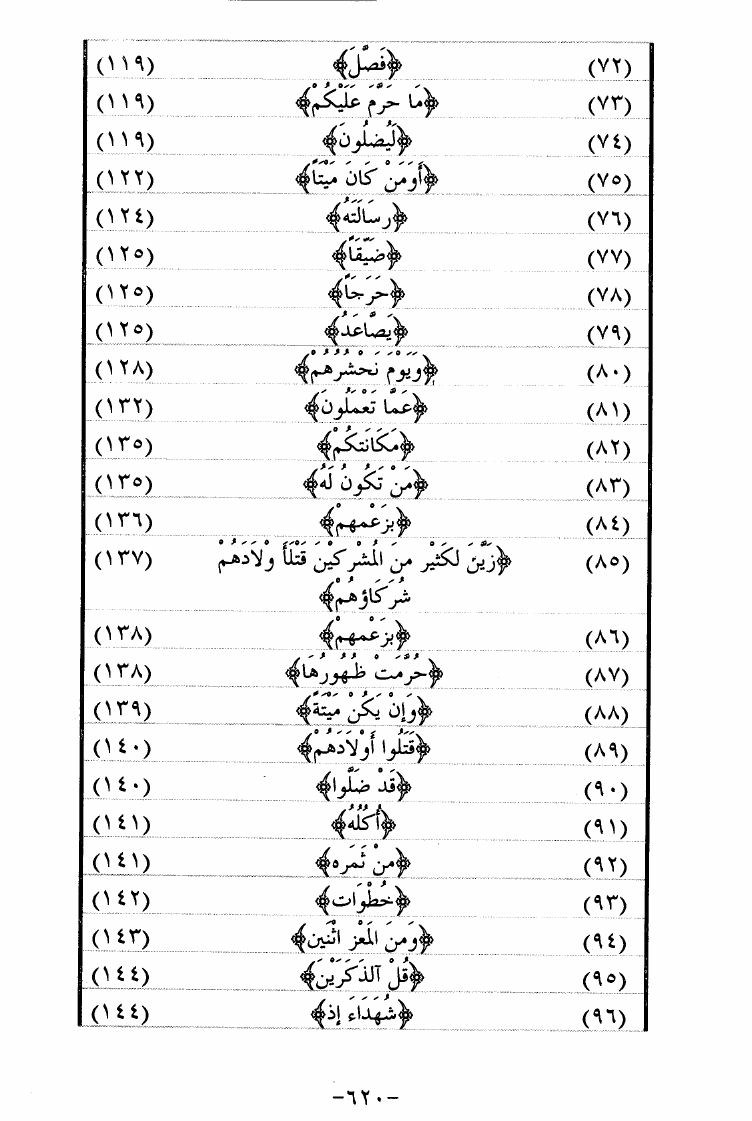 (٧٢) ﴿فَصَّلَ﴾ (١١٩)
(٧٣) ﴿مَا حَرَّمَ عَلَيْكُمْ﴾ (١١٩)
(٧٤) ﴿لَيُضلُونَ﴾ (١١٩)
(٧٥) ﴿أَوَمَنْ كَانَ مَيْتَاً﴾ (١٢٢)
(٧٦) ﴿رسَالَتَهُ﴾ (١٢٤)
(٧٧) ﴿ضَيِّقَاً﴾ (١٢٥)
(٧٨) ﴿حَرَجَاً﴾ (١٢٥)
(٧٩) ﴿يَصَّاعَدُ﴾ (١٢٥)
(٨٠) ﴿وَيَوْمَ نَحْشُرُهُمْ﴾ (١٢٨)
(٨١) ﴿عَمَّا تَعْمَلُونَ﴾ (١٣٢)
(٨٢) ﴿مَكَانَتكُمْ﴾ (١٣٥)
(٨٣) ﴿مَنْ تَكُونُ لَهُ﴾ (١٣٥)
(٨٤) ﴿بزَعْمهمْ﴾ (١٣٦)
(٨٥) ﴿زَيَّنَ لكَثيْر منَ المُشْركيْنَ قَتْلَأَ وْلاَدَهُمْ (١٣٧)
شُرَكَاؤهُمْ﴾
(٨٦) ﴿بزَعْمهمْ﴾ (١٣٨)
(٨٧) ﴿حُرِّمَتْ ظُهُورُهَا﴾ (١٣٨)
(٨٨) ﴿وَإنْ يَكُنْ مَيْتَةً﴾ (١٣٩)
(٨٩) ﴿قَتَلُوا أَوْلاَدَهُمْ﴾ (١٤٠)
(٩٠) ﴿قَدْ ضَلُّوا﴾ (١٤٠)
(٩١) ﴿أُكُلُهُ﴾ (١٤١)
(٩٢) ﴿منْ ثَمَره﴾ (١٤١)
(٩٣) ﴿خُطْوَات﴾ (١٤٢)
(٩٤) ﴿وَمنَ المَعْز اثْنَين﴾ (١٤٣)
(٩٥) ﴿قُلْ آلذَكَرَيْنَ﴾ (١٤٤)
(٩٦) ﴿شُهَدَاءَ إذ﴾ (١٤٤)
-٦٢٠-